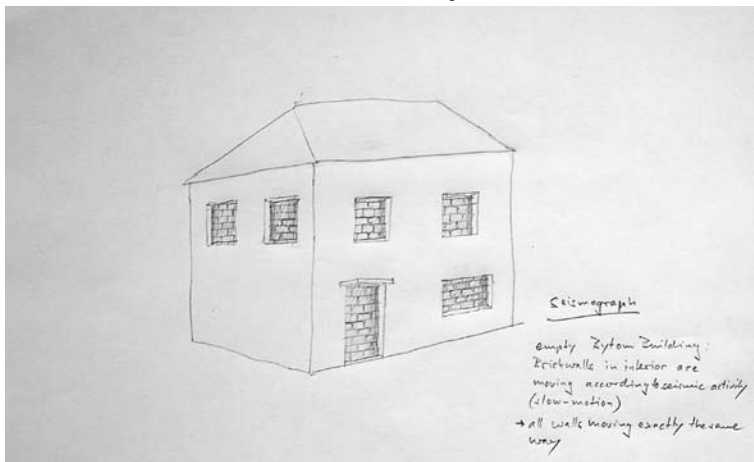 Seismograph
empty Bytom Building:
Brickwalls in interior are
moving according to seismic activity
(slow-motion)
→ all walls moving exactly the same
way